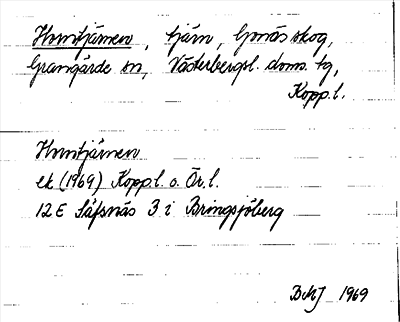 Horntjärnen, tjärn, Gonäs skog,
Grangärde sn, Västerbergsl. doms. tg,
Kopp.l.
Horntjärnen
ek (1969) Kopp.l. o. Ör.l.
12E Säfsnäs 3 i Bringsjöberg
BMJ 1969